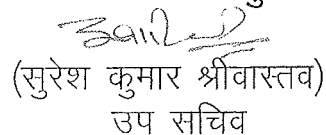 (सुरेश कुमार श्रीवास्तव)
उप सचिव